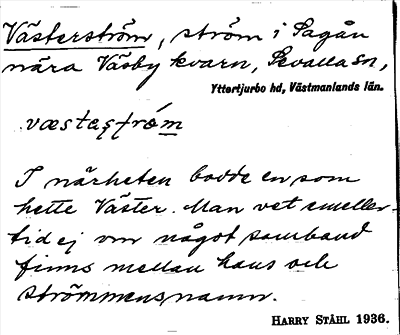 Västerström, ström i Sagån
nära Väsby kvarn, Sevalla sn,
Yttertjurbo hd, Västmanlands län.
væstaʂtrøm
I närheten bodde en som
hette Väster. Man vet emeller-
tid ej om något samband
finns mellan hans och
strömmens namn.
HARRY STÅHL 1936.